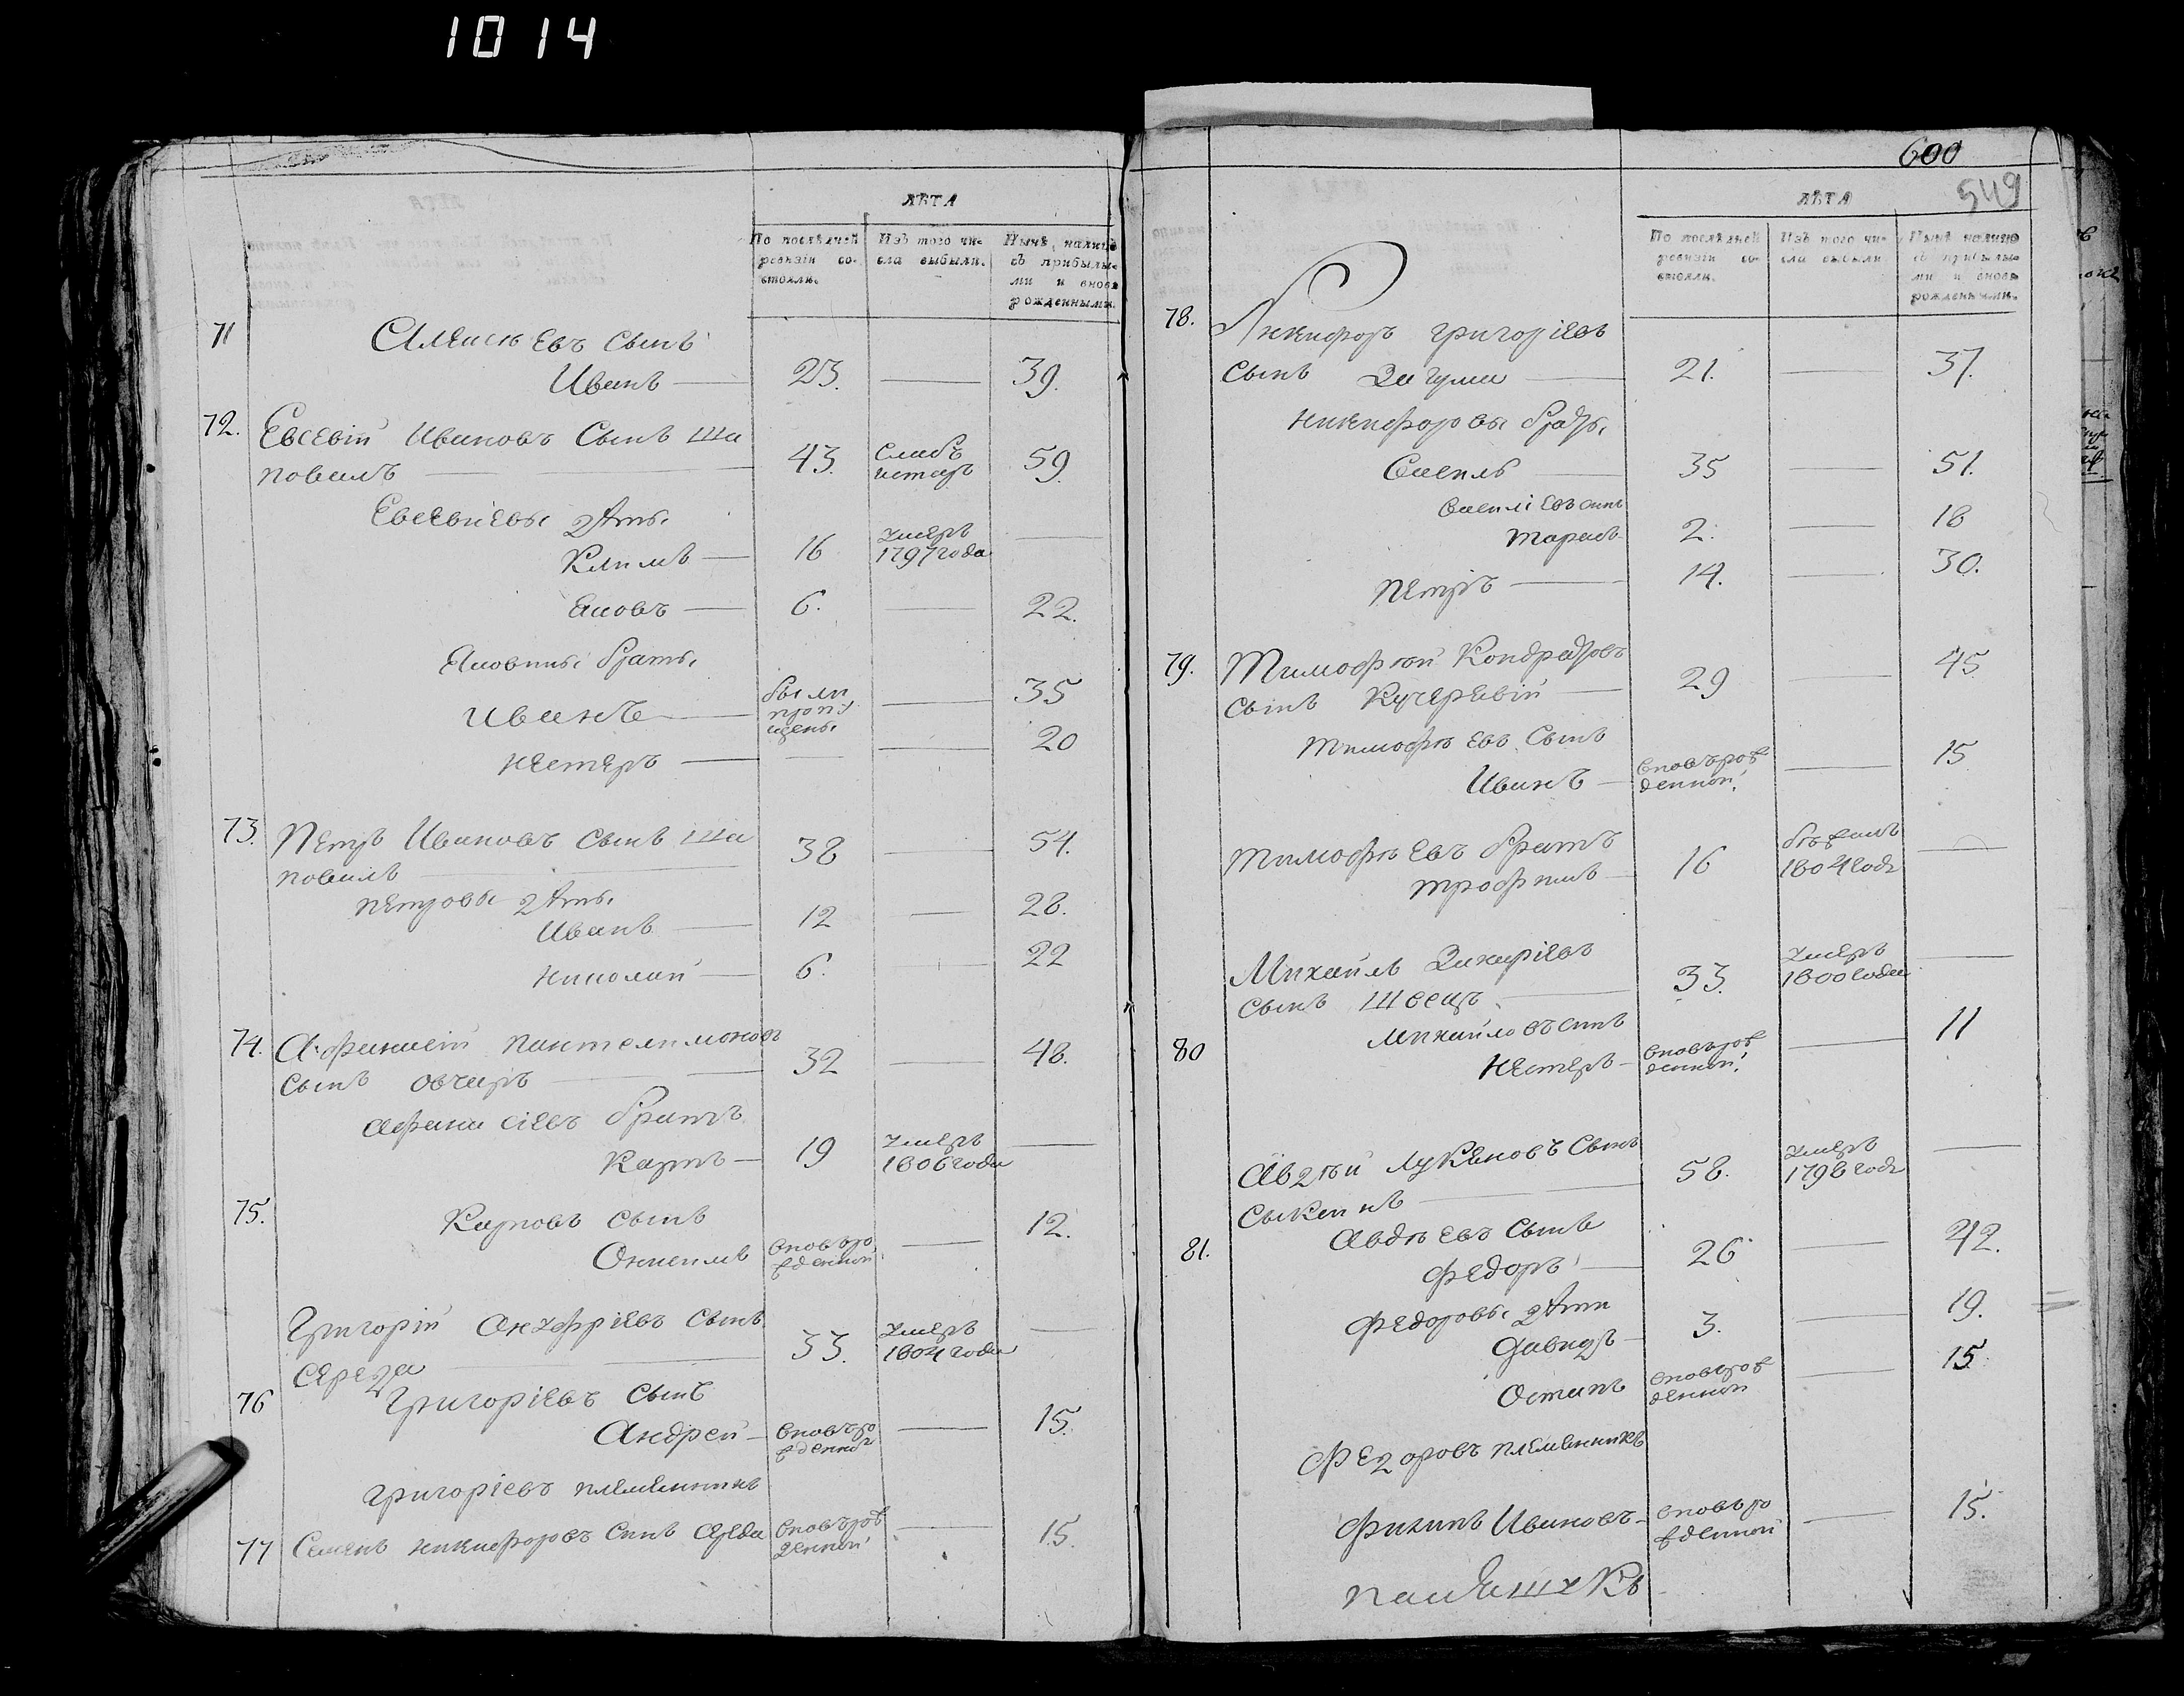 1014
ЛѢТА
По послѣдней ревизіи состояли.
Изъ того числа выбыли.
Нынѣ налицо съ прибылыми и вновь рожденными.
71
Алексѣевъ сынъ
Иванъ — 23. — 39.
72. Евсевій Ивановъ сынъ Ша
повалъ — 43. Слабъ и старъ 59.
Евсевіевы дѣти
Климъ — 16 Умеръ 1797 года —
Яковъ — 6. — 22.
Яковины браты
Иванъ — были пропущены — 35
Нестеръ — — — 20
73. Петръ Ивановъ сынъ Ша
повалъ — 38 — 54.
Петровы дѣти
Иванъ — 12 — 28.
Николай — 6. — 22
74. Афанасій Пантелимоновъ
сынъ Овчаръ — 32 — 48.
Афанасіевъ братъ
Карпъ — 19 Умеръ 1806 года —
75. Карповъ сынъ
вновь рожденной — 12.
Григорій Онуфріевъ сынъ
Середа — 33. Умеръ 1804 года —
76 Григоріевъ сынъ
Андрей — вновь рожденной — 15.
Григоріевъ племенникъ
77 Семенъ Никифоровъ синъ Середа вновь рожденной — 15.
600
549
ЛѢТА
По послѣдней ревизіи состояли.
Изъ того числа выбыли
Нынѣ налицо съ прибылыми и вновь рожденными.
78. Никифоръ Григоріевъ
сынъ — 21. — 37.
Никифоровы браты
Василь — 35 — 51.
Василіевъ синъ
Тарасъ 2. — 18
Петръ — 14. — 30.
79. Тимофѣй Кондратовъ
сынъ Кучерявій — 29 — 45
Тимофѣевъ сынъ
Иванъ — вновь рожденной — 15
Тимофѣевъ братъ
Трофимъ — 16 бѣжалъ 1804 года —
Михайлъ Захаріевъ
сынъ Швецъ — 33. Умеръ 1800 года —
Михайловъ синъ
80 Нестеръ — вновь рожденной — 11
Авдѣй Лукяновъ сынъ
58. Умеръ 1798 года —
Авдѣевъ сынъ
81. Федоръ — 26 — 42.
Федоровы дѣти
Давидъ — 3. — 19.
Остапъ вновь рожденной — 15
Федоровъ племенникъ
Филипъ Ивановъ — вновь рожденной — 15.